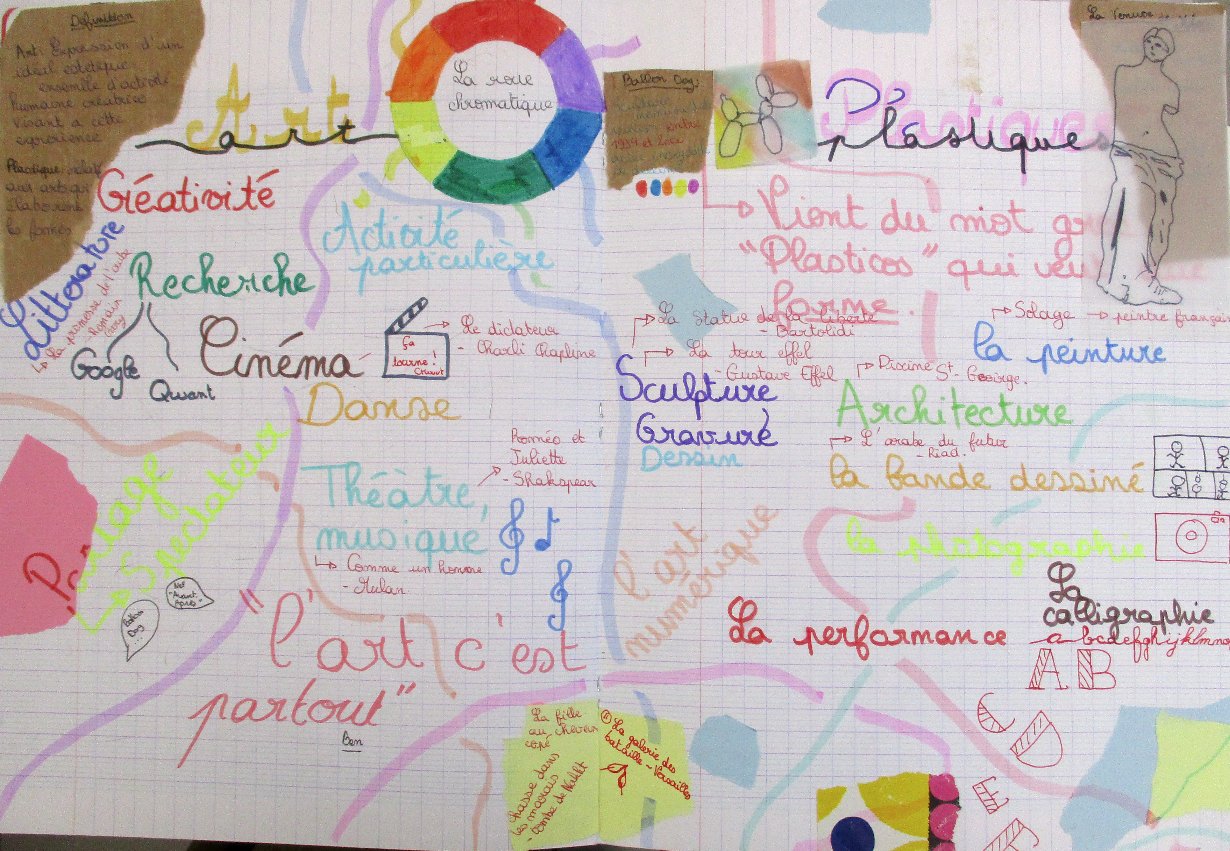 Définition
Art: Expression d'un
idéal estétique
ensemble d'activité
humaine créatrice
visant a cette
expression
Plastique: relatif
aux arts qui
élaborent
les formes
Art
art
La roue
chromatique
Ballon Dog:
1994 et 2000
Plastiques
plástiques
La Venuse
Créativité
Activité
particulière
Vient du mot gr
"Plasticos" qui veu
forme.
Littérature
La promesse de l'aube
- Romain
Gary
Recherche
Google
Qwant
Cinéma
Ça
tourne!
Le dictateur
- Charli Chapline
La Statue de la liberté
- Bartoldi
La tour effel
- Gustave Effel
Solage → peintre français
la peinture
Piscine St-Goeirge.
Sculpture
Gravure
Dessin
Architecture
L'arabe du futur
- Riad.
la bande dessiné
Danse
Roméo et
Juliette
- Shakspear
Théàtre,
musique
Comme un homme
- Mulan.
Partage
→ Spectateur
Ballon
Dog
...
Nef
Avant
Après
l'art
numérique
la photographie
La performance
La
calligraphie
abcdefghijklmno
A B
"l'art c'est
partout"
Ben
La fille
au cheveux
copé
chasse dans
les marais
- tombe de Nakht
La galerie des
bataille - Versailles
C D
E